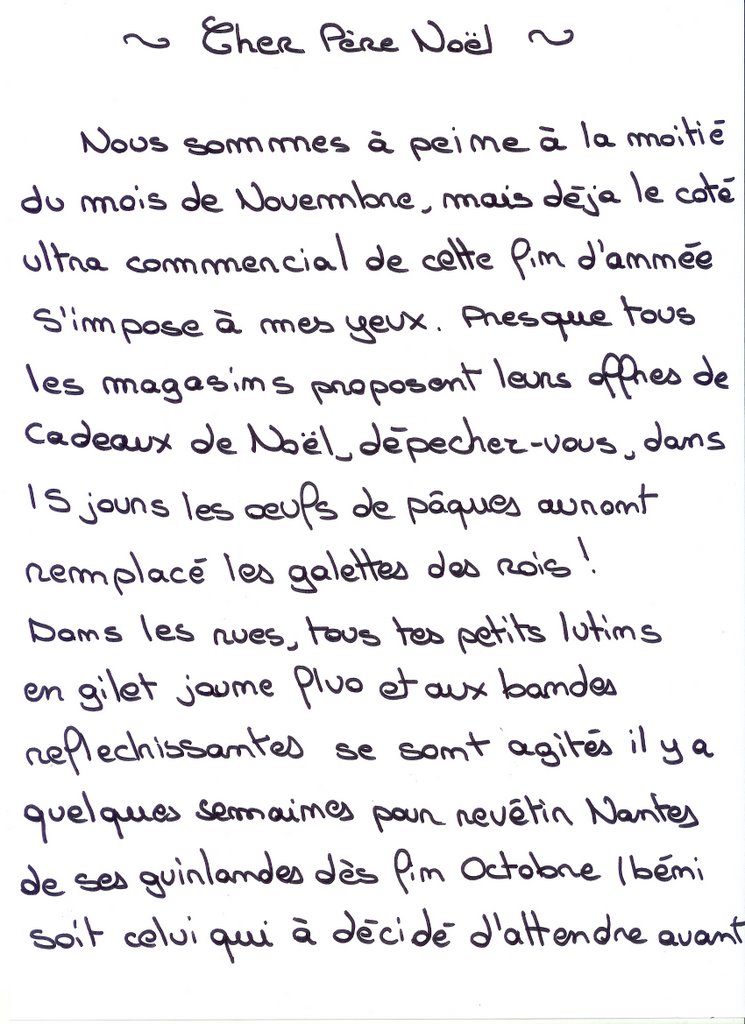 ~ Cher Père Noël ~
Nous sommes à peine à la moitié
du mois de Novembre, mais déja le coté
ultra commercial de cette fin d'année
s'impose à mes yeux. Presque tous
les magasins proposent leurs offres de
cadeaux de Noël, dépechez-vous, dans
15 jours les œufs de pâques auront
remplacé les galettes des rois !
Dans les rues, tous tes petits lutins
en gilet jaune fluo et aux bandes
reflechissantes se sont agités il y a
quelques semaines pour revêtir Nantes
de ses guirlandes dès fin Octobre (béni
soit celui qui à décidé d'attendre avant